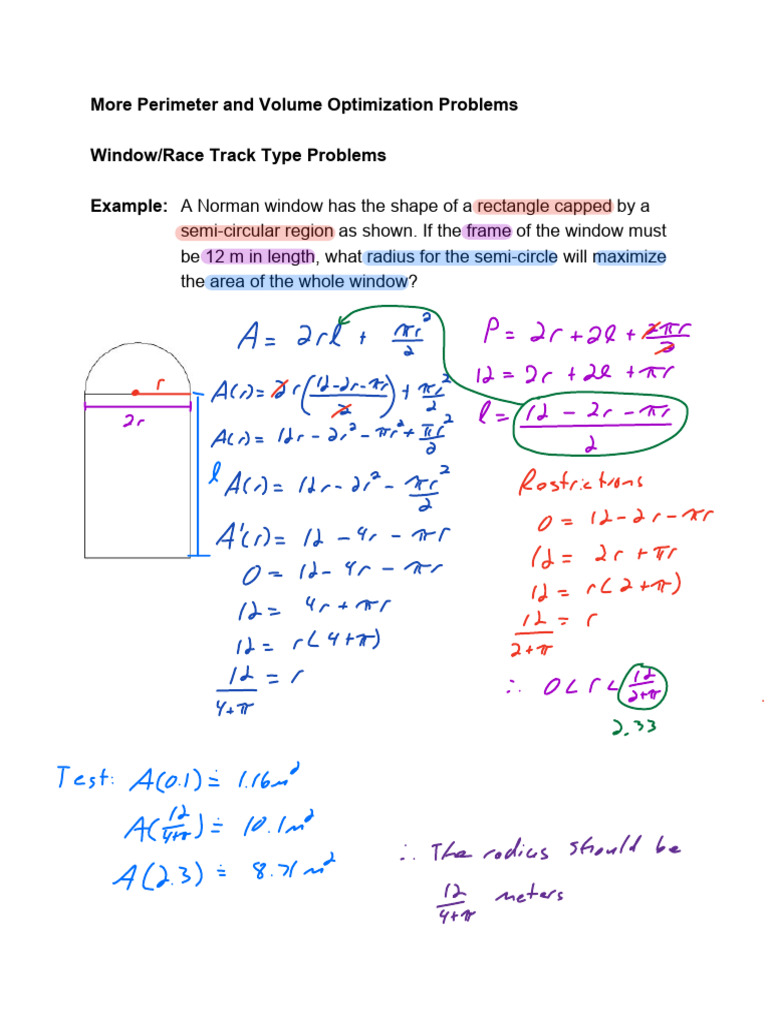 More Perimeter and Volume Optimization Problems
Window/Race Track Type Problems
Example: A Norman window has the shape of a rectangle capped by a
semi-circular region as shown. If the frame of the window must
be 12 m in length, what radius for the semi-circle will maximize
the area of the whole window?
r
2r
l
A = 2rl + πr²/2
A(r) = 2r((12-2r-πr)/2) + πr²/2
A(r) = 12r - 2r² - πr² + πr²/2
A(r) = 12r - 2r² - πr²/2
A'(r) = 12 - 4r - πr
0 = 12 - 4r - πr
12 = 4r + πr
12 = r(4+π)
12/(4+π) = r
P = 2r + 2l + 2πr/2
12 = 2r + 2l + πr
l = (12 - 2r - πr)/2
Restrictions
0 = 12 - 2r - πr
12 = 2r + πr
12 = r(2+π)
12/(2+π) = r
∴ 0 < r < 12/(2+π)
2.33
Test: A(0.1) ≐ 1.16m²
A(12/(4+π)) ≐ 10.1m²
A(2.3) ≐ 8.71m²
∴ The radius should be
12/(4+π) meters